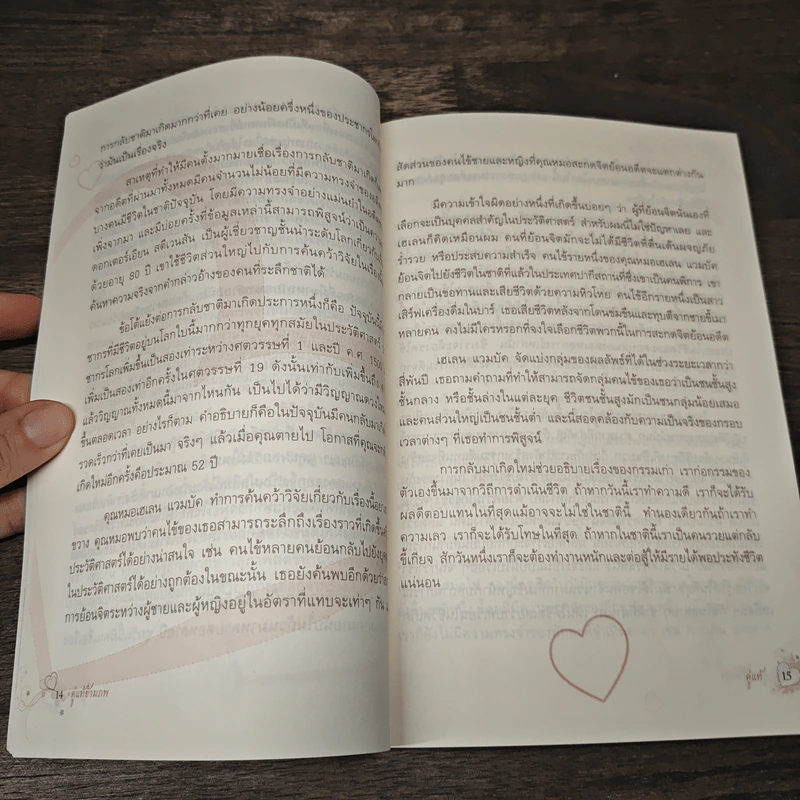 การกลับชาติมาเกิดมากกว่าที่เคย อย่างน้อยครึ่งหนึ่งของประชากรโลก
ว่ามันเป็นเรื่องจริง
สาเหตุที่ทำให้มีคนตั้งมากมายเชื่อเรื่องการกลับชาติมาเกิด
จากอดีตที่ผ่านมาทั้งหมดมีคนจำนวนไม่น้อยที่มีความทรงจำของ
บางคนมีชีวิตในชาติปัจจุบัน โดยมีความทรงจำอย่างแม่นยำใน
เพิ่งจากมา และมีบ่อยครั้งที่ข้อมูลเหล่านี้สามารถพิสูจน์ว่าเป็นความ
ดอกเตอร์เอียน สตีเวนสัน เป็นผู้เชี่ยวชาญชั้นนำระดับโลกเกี่ยวกับ
ด้วยอายุ 80 ปี เขาใช้ชีวิตส่วนใหญ่ไปกับการค้นคว้าวิจัยในเรื่อง
ค้นหาความจริงจากคำกล่าวอ้างของคนที่ระลึกชาติได้
ข้อโต้แย้งต่อการกลับชาติมาเกิดประการหนึ่งก็คือ ปัจจุบัน
ชากรที่มีชีวิตอยู่บนโลกใบนี้มากกว่าทุกยุคทุกสมัยในประวัติศาสตร์
ชากรโลกเพิ่มขึ้นเป็นสองเท่าระหว่างศตวรรษที่ 1 และปี ค.ศ. 1500
เพิ่มเป็นสองเท่าอีกครั้งในศตวรรษที่ 19 ดังนั้นเท่ากับเพิ่มขึ้นถึง
แล้ววิญญาณทั้งหมดนี้มาจากไหนกัน เป็นไปได้ว่ามีวิญญาณดวงใหม่
ขึ้นตลอดเวลา อย่างไรก็ตาม คำอธิบายก็คือในปัจจุบันมีคนกลับมาเกิด
รวดเร็วกว่าที่เคยเป็นมา จริงๆ แล้วเมื่อคุณตายไป โอกาสที่คุณจะกลับ
เกิดใหม่อีกครั้งคือประมาณ 52 ปี
คุณหมอเฮเลน แวมบัค ทำการค้นคว้าวิจัยเกี่ยวกับเรื่องนี้อย่าง
ขวาง คุณหมอพบว่าคนไข้ของเธอสามารถระลึกถึงเรื่องราวที่เกิดขึ้น
ประวัติศาสตร์ได้อย่างน่าสนใจ เช่น คนไข้หลายคนย้อนกลับไปยังยุค
ในประวัติศาสตร์ได้อย่างถูกต้องในขณะนั้น เธอยังค้นพบอีกด้วยว่า
การย้อนจิตระหว่างผู้ชายและผู้หญิงอยู่ในอัตราที่แทบจะเท่าๆ กัน
14 คู่แท้ข้ามภพ
สัดส่วนของคนไข้ชายและหญิงที่คุณหมอสะกดจิตย้อนอดีตจะแตกต่างกัน
มาก
มีความเข้าใจผิดอย่างหนึ่งที่เกิดขึ้นบ่อยๆ ว่า ผู้ที่ย้อนจิตนั่นเองที่
เลือกจะเป็นบุคคลสำคัญในประวัติศาสตร์ สำหรับผมนี่ไม่ใช่ปัญหาเลย และ
เฮเลนก็คิดเหมือนผม คนที่ย้อนจิตมักจะไม่ได้มีชีวิตที่ตื่นเต้นผจญภัย
ร่ำรวย หรือประสบความสำเร็จ คนไข้รายหนึ่งของคุณหมอเฮเลน แวมบัค
ย้อนจิตไปยังชีวิตในชาติที่แล้วในประเทศปากีสถานที่ซึ่งเขาเป็นคนพิการ เขา
กลายเป็นขอทานและเสียชีวิตด้วยความหิวโหย คนไข้อีกรายหนึ่งเป็นสาว
เสิร์ฟเครื่องดื่มในบาร์ เธอเสียชีวิตหลังจากโดนข่มขืนและทุบตีจากชายขี้เมา
หลายคน คงไม่มีใครหรอกที่จงใจเลือกชีวิตพวกนี้ในการสะกดจิตย้อนอดีต
เฮเลน แวมบัค จัดแบ่งกลุ่มของผลลัพธ์ที่ได้ในช่วงระยะเวลากว่า
สี่พันปี เธอถามคำถามที่ทำให้สามารถจัดกลุ่มคนไข้ของเธอว่าเป็นชนชั้นสูง
ชั้นกลาง หรือชั้นล่างในแต่ละยุค ชีวิตชนชั้นสูงมักเป็นชนกลุ่มน้อยเสมอ
และคนส่วนใหญ่เป็นชนชั้นต่ำ และนี่สอดคล้องกับความเป็นจริงของกรอบ
เวลาต่างๆ ที่เธอทำการพิสูจน์
การกลับมาเกิดใหม่ช่วยอธิบายเรื่องของกรรมเก่า เราก่อกรรมของ
ตัวเองขึ้นมาจากวิถีการดำเนินชีวิต ถ้าหากวันนี้เราทำความดี เราก็จะได้รับ
ผลดีตอบแทนในที่สุดแม้อาจจะไม่ใช่ในชาตินี้ ทำนองเดียวกันถ้าเราทำ
ความเลว เราก็จะได้รับโทษในที่สุด ถ้าหากในชาตินี้เราเป็นคนรวยแต่กลับ
ขี้เกียจ สักวันหนึ่งเราก็จะต้องทำงานหนักและต่อสู้ให้มีรายได้พอประทังชีวิต
แน่นอน
คู่แท้ 15